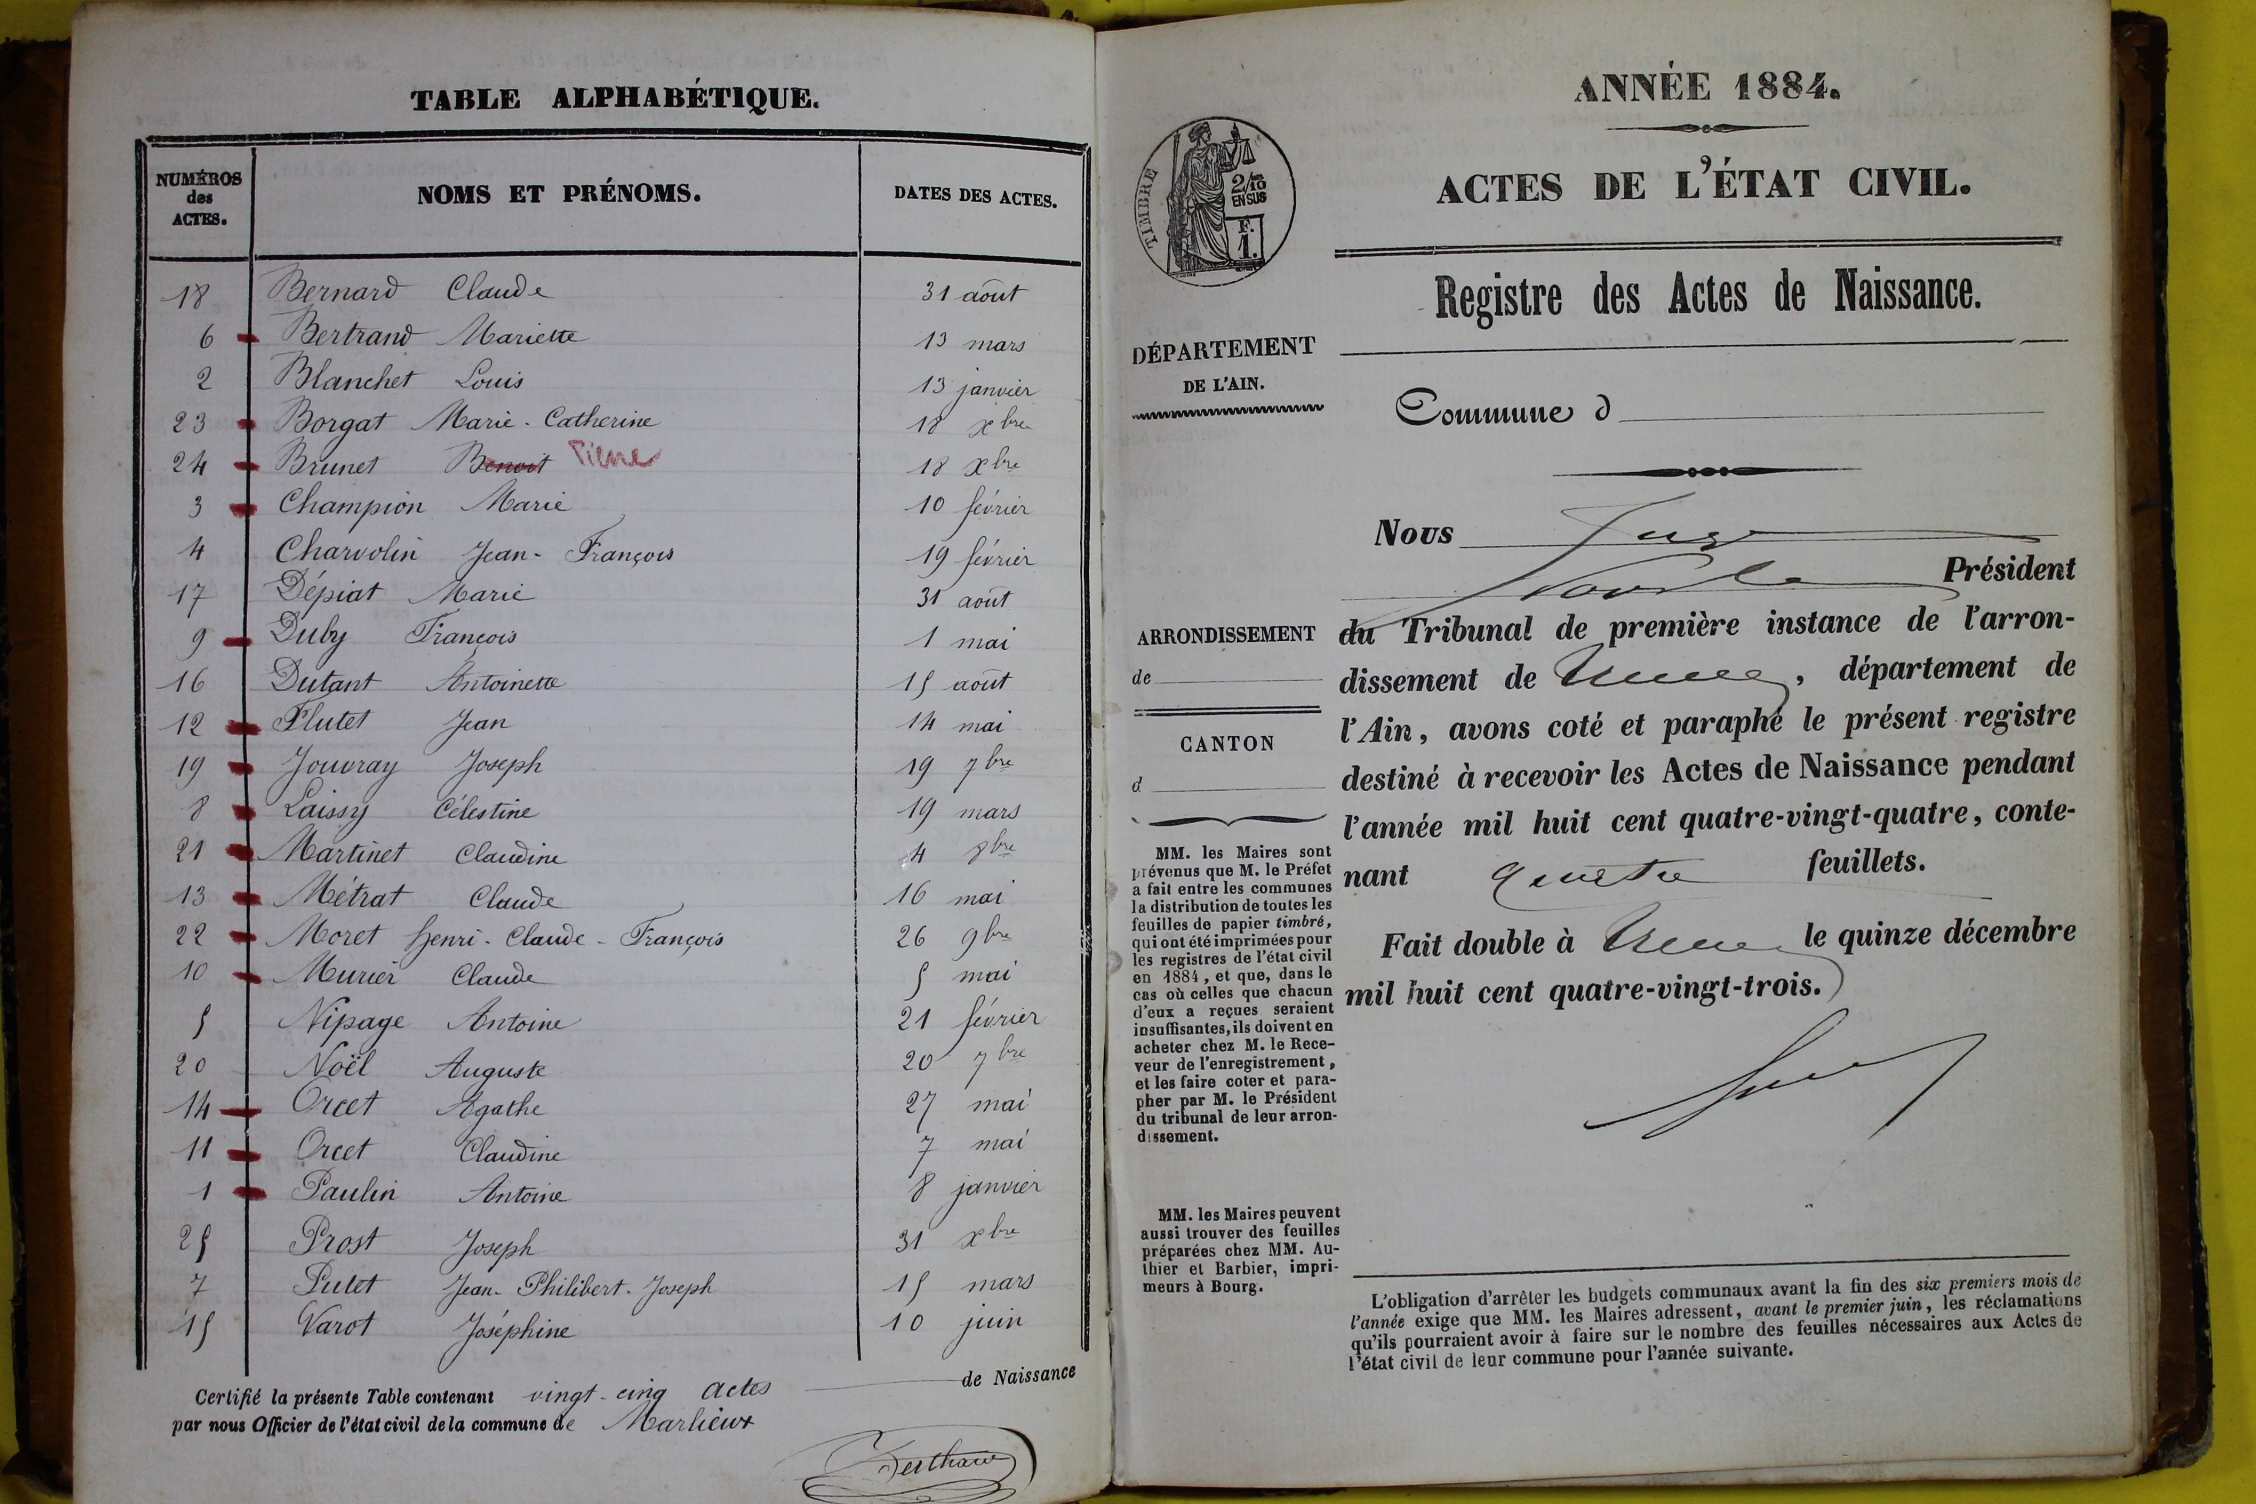 TABLE ALPHABÉTIQUE.
NUMÉROS des ACTES. NOMS ET PRÉNOMS. DATES DES ACTES.
18 Bernard Claude 31 août
6 Bertrand Mariette 13 mars
2 Blanchet Louis 13 janvier
23 Borgat Marie-Catherine 18 xbre
24 Brunet Benoit Pierre 18 xbre
3 Champion Marie 10 février
4 Charvolin Jean-François 19 février
17 Dépiat Marie 31 août
9 Duby François 1 mai
16 Dutant Antoinette 15 août
12 Flutet Jean 14 mai
19 Jouvray Joseph 19 7bre
8 Laissy Célestine 19 mars
21 Martinet Claudine 4 8bre
13 Métrat Claude 16 mai
22 Moret Henri-Claude-François 26 9bre
10 Murier Claude 5 mai
5 Nipage Antoine 21 février
20 Noël Auguste 20 7bre
14 Orcet Agathe 27 mai
11 Orcet Claudine 7 mai
1 Paulin Antoine 8 janvier
25 Prost Joseph 31 xbre
7 Putet Jean-Philibert-Joseph 15 mars
15 Varot Joséphine 10 juin
Certifié la présente Table contenant vingt-cinq actes de Naissance
par nous Officier de l'état civil de la commune de Marlieux
ANNÉE 1884.
ACTES DE L'ÉTAT CIVIL.
TIMBRE
2/10
EN SUS
F.
1.
Registre des Actes de Naissance.
DÉPARTEMENT
DE L'AIN.
Commune d
Nous
Président
ARRONDISSEMENT
de
CANTON
d
du Tribunal de première instance de l'arron-
dissement de , département de
l'Ain, avons coté et paraphé le présent registre
destiné à recevoir les Actes de Naissance pendant
l'année mil huit cent quatre-vingt-quatre, conte-
nant quatre feuillets.
Fait double à le quinze décembre
mil huit cent quatre-vingt-trois.
MM. les Maires sont
prévenus que M. le Préfet
a fait entre les communes
la distribution de toutes les
feuilles de papier timbré,
qui ont été imprimées pour
les registres de l'état civil
en 1884, et que, dans le
cas où celles que chacun
d'eux a reçues seraient
insuffisantes, ils doivent en
acheter chez M. le Rece-
veur de l'enregistrement,
et les faire coter et para-
pher par M. le Président
du tribunal de leur arron-
dissement.
MM. les Maires peuvent
aussi trouver des feuilles
préparées chez MM. Au-
thier et Barbier, impri-
meurs à Bourg.
L'obligation d'arrêter les budgets communaux avant la fin des six premiers mois de
l'année exige que MM. les Maires adressent, avant le premier juin, les réclamations
qu'ils pourraient avoir à faire sur le nombre des feuilles nécessaires aux Actes de
l'état civil de leur commune pour l'année suivante.